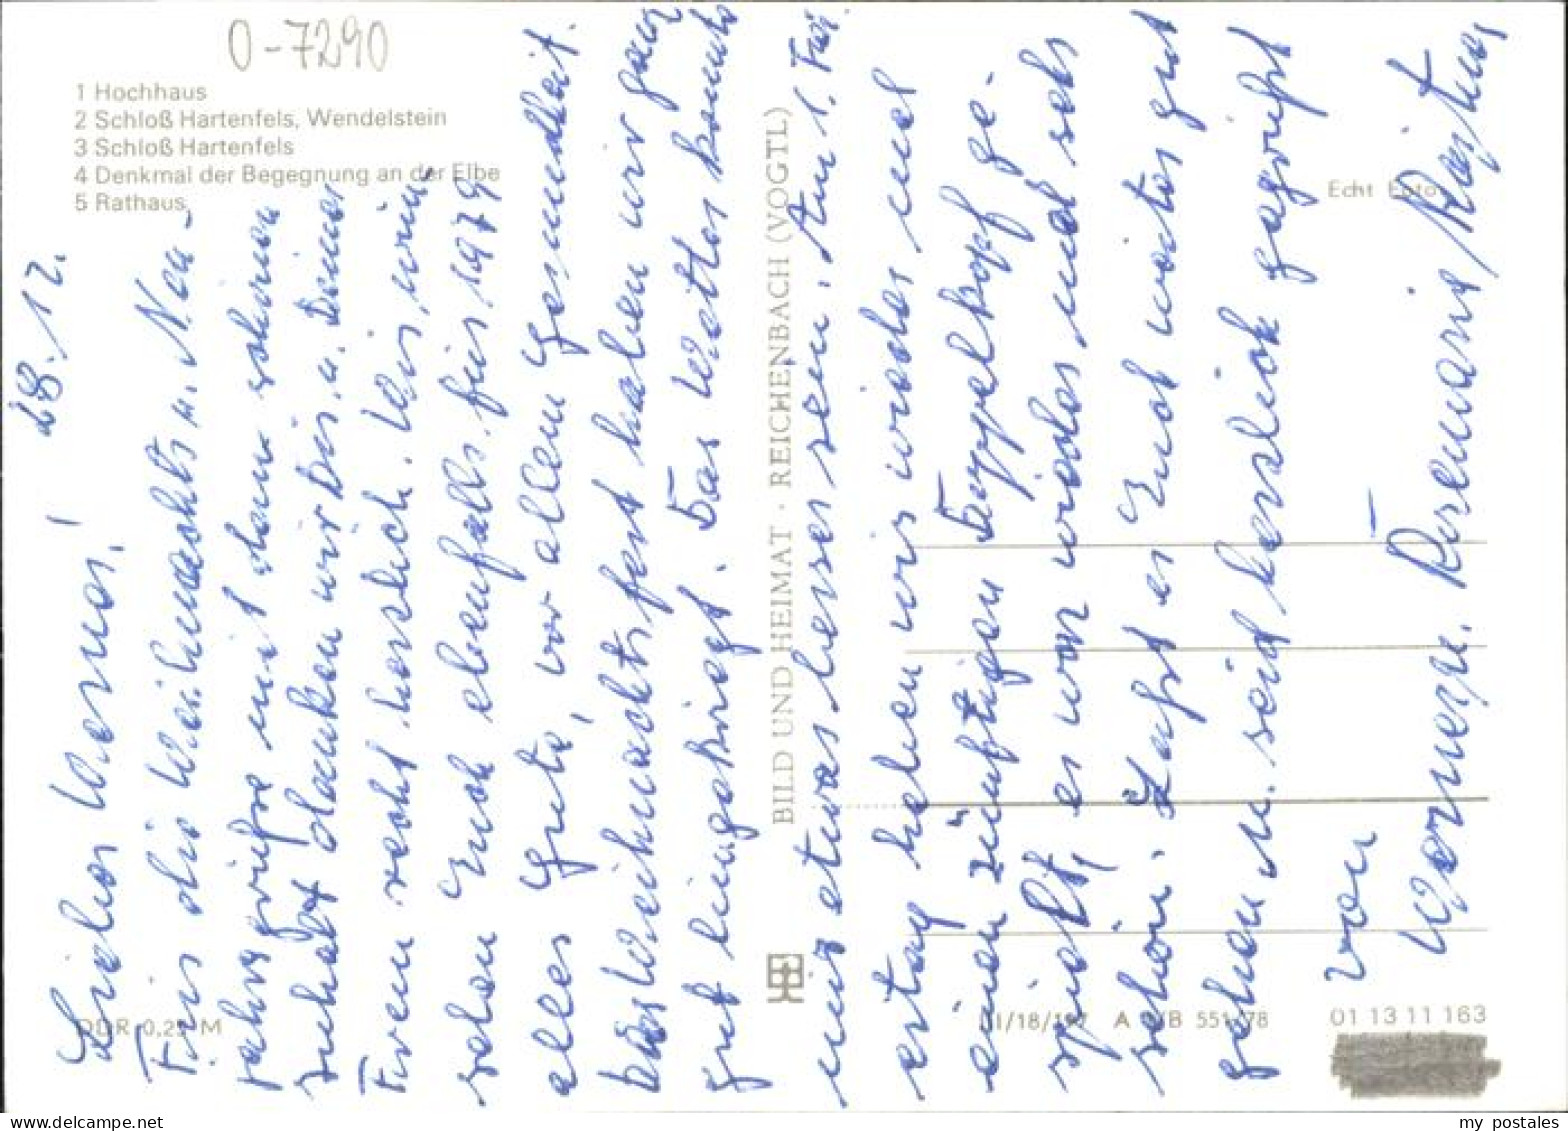 0-7290
1 Hochhaus
2 Schloß Hartenfels, Wendelstein
3 Schloß Hartenfels
4 Denkmal der Begegnung an der Elbe
5 Rathaus
Echt Foto
BILD UND HEIMAT · REICHENBACH (VOGTL)
DDR 0,25 M
III/18/197 A 1/B 551/78
01 13 11 163
28.12.
Lieber Werner!
Für die Weihnachts u. Neu-
jahrsgrüße mit dem schönen
Inhalt danken wir Dir u. Deiner
Frau recht herzlich. Wir wün-
schen Euch ebenfalls für 1979
alles Gute, vor allem Gesundheit.
das Weihnachtsfest haben wir ganz
gut hingekriegt. Das Wetter konnte
nur etwas besser sein. Am 1. Fei-
ertag haben wir wieder mal
einen zünftigen Doppelkopf ge-
spielt, es war wieder mal sehr
schön. Laßt es Euch weiter gut
gehen u. seid herzlich gegrüßt
von
Werner u. Rosemarie
my postales